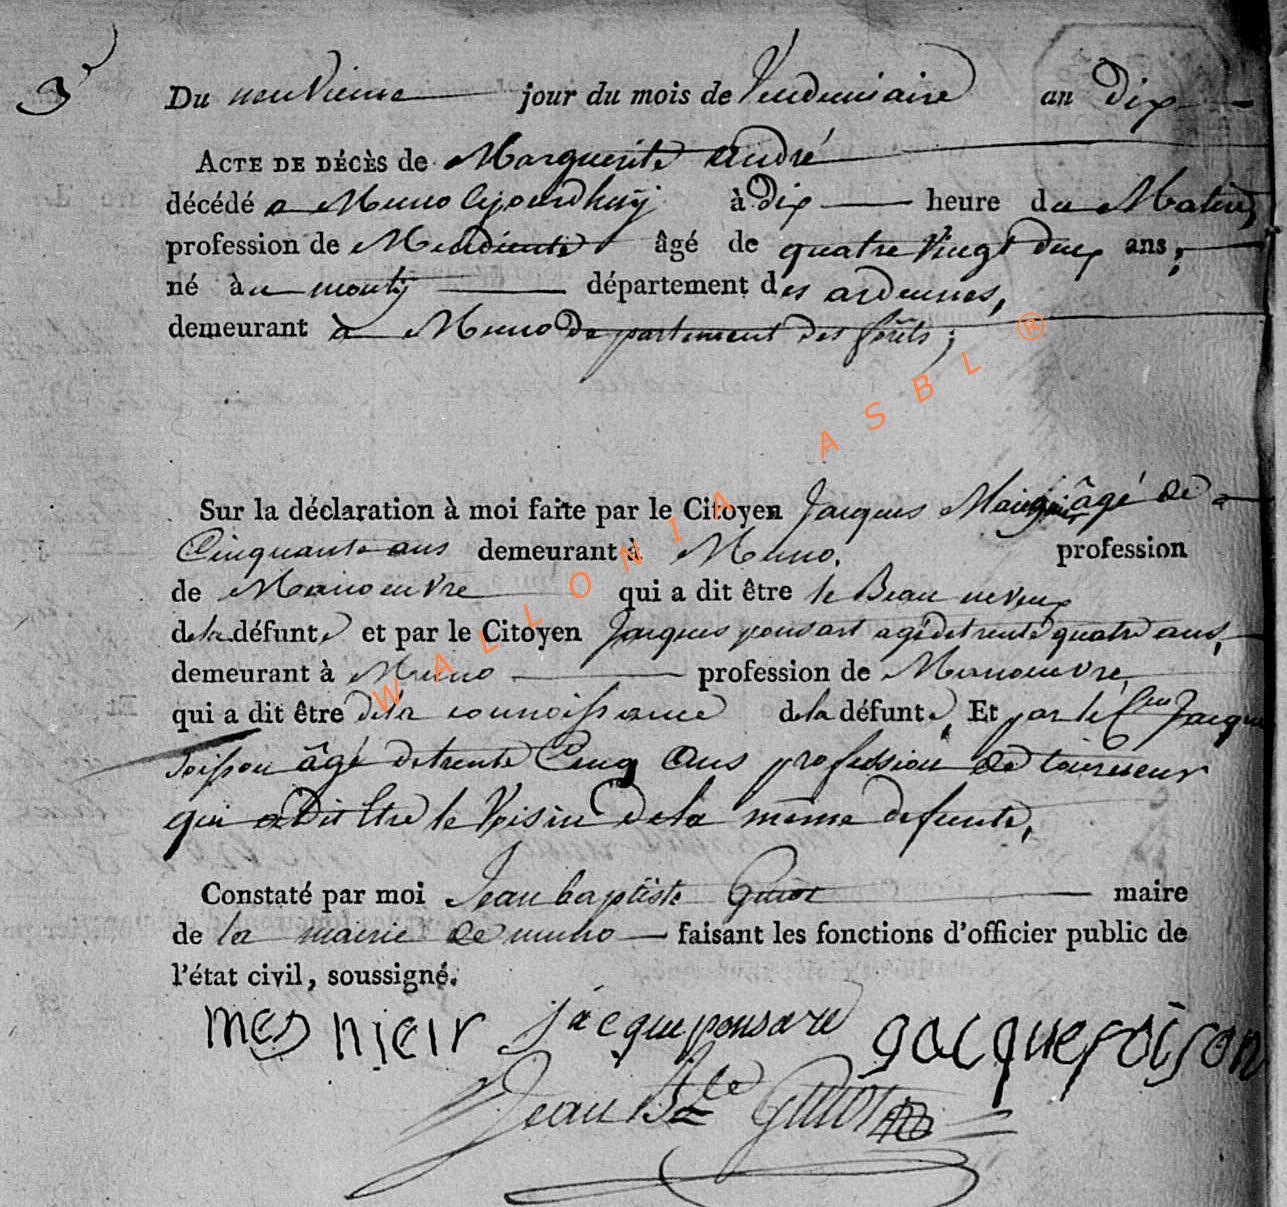 3e
Du neuvieme jour du mois de Vendemiaire an dix
ACTE DE DÉCÈS de Marguerite andré
décédé a Muno Ajourdhuÿ à dix heure du Matin,
profession de Mendiente âgé de quatre Vingt deux ans,
né àu montÿ département des ardennes,
demeurant à Muno departement des forêts;
Sur la déclaration à moi faite par le Citoyen Jacques âgé de
Cinquante ans demeurant à Muno. profession
de Manoeuvre qui a dit être le Beau neveux
dela défunte et par le Citoyen Jacques ponsart agé de trente quatre ans,
demeurant à Muno profession de Manoeuvre,
qui a dit être dela connoissance dela défunte, Et par le Cen Jacque
Soisson âgé de trente Cinq Ans profession de tourneur
qui a Dit Etre le Voisin dela même defunte,
Constaté par moi Jean baptiste Guiot maire
de la mairie de muno faisant les fonctions d'officier public de
l'état civil, soussigné.
mesnieir jacque ponsare gacque soison
Jean Bte Guiot
WALLONIA ASBL ®